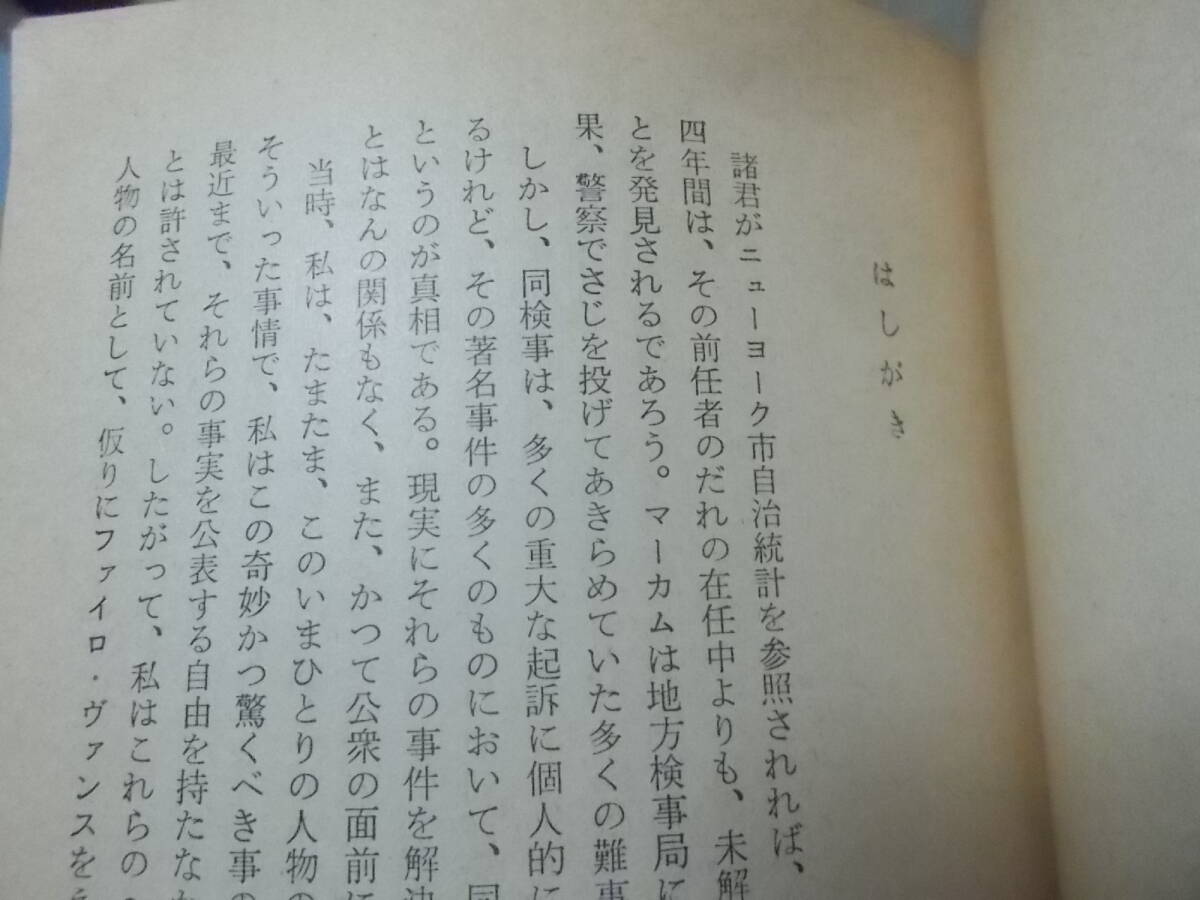 はしがき
諸君がニューヨーク市自治統計を参照されれば、
四年間は、その前任者のだれの在任中よりも、未解
とを発見されるであろう。マーカムは地方検事局に
果、警察でさじを投げてあきらめていた多くの難事
しかし、同検事は、多くの重大な起訴に個人的に
るけれど、その著名事件の多くのものにおいて、同
というのが真相である。現実にそれらの事件を解決
とはなんの関係もなく、また、かつて公衆の面前に
当時、私は、たまたま、このいまひとりの人物の
そういった事情で、私はこの奇妙かつ驚くべき事の
最近まで、それらの事実を公表する自由を持たなか
とは許されていない。したがって、私はこれらの
人物の名前として、仮りにファイロ・ヴァンスを